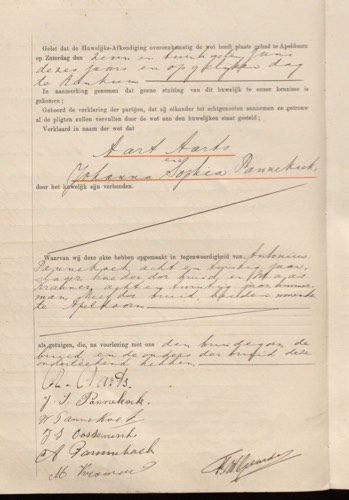 Gelet dat de Huwelijks-Afkondiging overeenkomstig de wet heeft plaats gehad te Apeldoorn
op Zaterdag den zeven en twintigsten Juni
dezes jaars en op gelijken dag
te Renkum
In aanmerking genomen dat geene stuiting van dit huwelijk te onzer kennisse is
gekomen;
Gehoord de verklaring der partijen, dat zij elkander tot echtgenooten aannemen en getrouw
al de pligten zullen vervullen door de wet aan den huwelijken staat gesteld;
Verklaard in naam der wet dat
Aart Aarts
en
Johanna Sophia Pannekoek,
door het huwelijk zijn verbonden.
Waarvan wij deze akte hebben opgemaakt in tegenwoordigheid van Antonius
Pannekoek, acht en vijftig jaar,
der bruid, en
acht en twintig jaar, timmer-
man, der bruid, beiden wonende
te Apeldoorn
als getuigen, die, na voorlezing met ons den bruidegom de
bruid, en de ouders der bruid deze
onderteekend hebben.
A. Aarts.
J. S. Pannekoek
W Pannekoek
J S
A Pannekoek
M Kramer